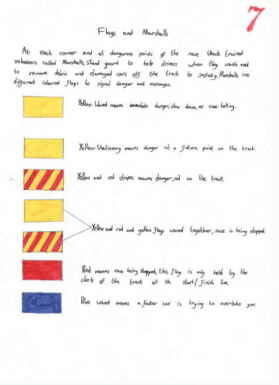 7
Flags and Marshalls
At each corner and at dangerous points of the race track trained
volunteers called Marshalls, stand guard to help drivers when they crash and
to remove debris and damaged cars off the track to safety. Marshalls use
different coloured flags to signal danger and messages.
Yellow Waved means immediate danger, slow down, no over taking.
Yellow Stationary means danger at a future point on the track.
Yellow and red stripes means danger, oil on the track.
Yellow and red and yellow flags waved together, race is being stopped.
Red means race being stopped, this flag is only held by the
clerk of the track at the start/finish line.
Blue waved means a faster car is trying to overtake you